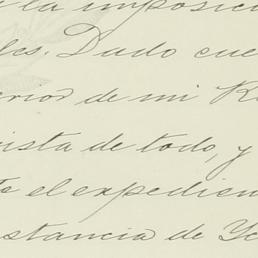 a la imposici
les. Dado cue
erior de mi R
ista de todo, y
te el expedien
stancia de Yc